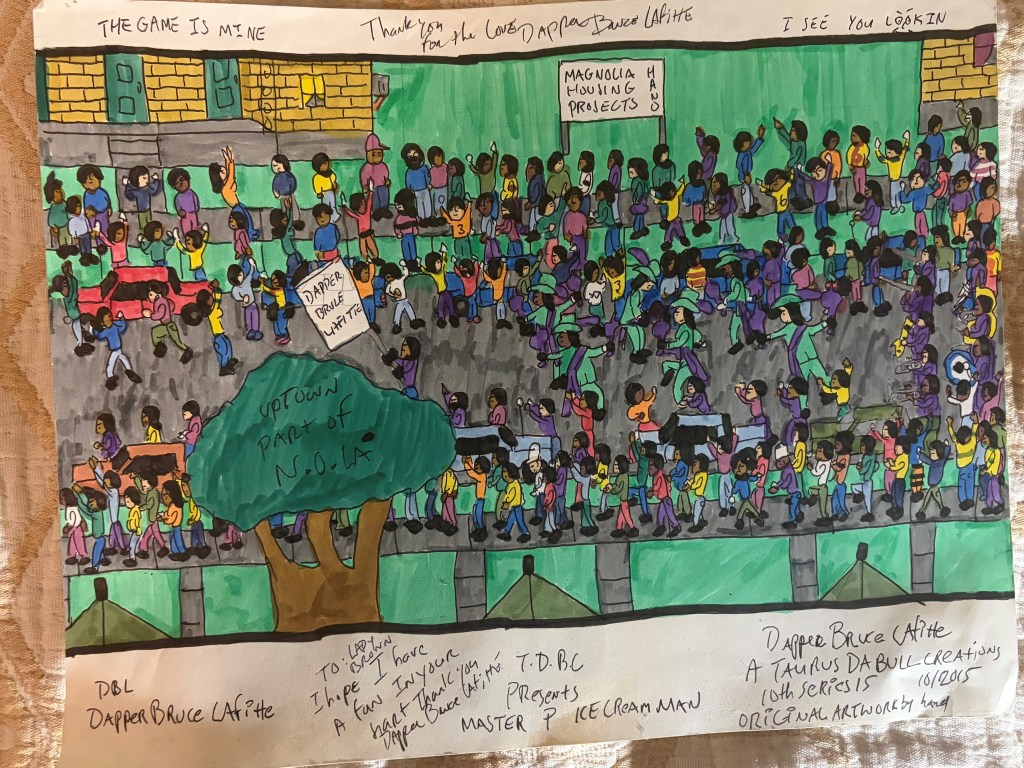 THE GAME IS MINE
Thank you
for the Love Dapper Bruce Lafitte
I SEE YOU LOOKIN
MAGNOLIA
HOUSING
PROJECTS
HANO
DAPPER
BRUCE
LAFITTE
UPTOWN
PART OF
N.O.LA
3
6
3
DBL
DAPPER BRUCE LAFITTE
TO: LADY
BROWN
I hope I have
A fan IN your
hart Thank you
Dapper Bruce Lafitte.
T.D.B.C
Presents
MASTER P ICE CREAM MAN
DAPPER BRUCE LAFITTE
A TAURUS DA BULL CREATIONS
10th SERIES 15 10/2015
ORIGINAL ARTWORK by hand